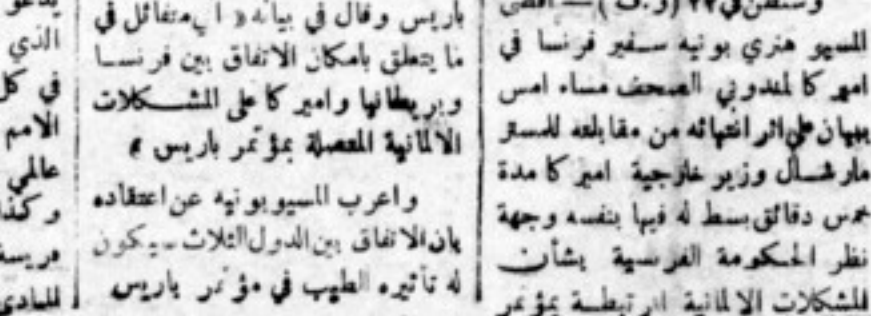 وشنطن في ٢٢ (و.ف) — افضى
المسيو هنري بونيه سفير فرنسا في
اميركا لمندوبي الصحف مساء امس
ببيان على اثر انتهائه من مقابلته للمستر
مارشال وزير خارجية اميركا مدة
خمس دقائق بسط له فيها بنفسه وجهة
نظر الحكومة الفرنسية بشأن
المشكلات الالمانية المرتبطة بمؤتمر
باريس وقال في بيانه « اني متفائل في
ما يتعلق بامكان الاتفاق بين فرنسا
وبريطانيا واميركا على المشكلات
الالمانية المتصلة بمؤتمر باريس »
واعرب المسيو بونيه عن اعتقاده
بان الاتفاق بين الدول الثلاث سيكون
له تأثيره الطيب في مؤتمر باريس
الذي
في كل
الامم
عالمي